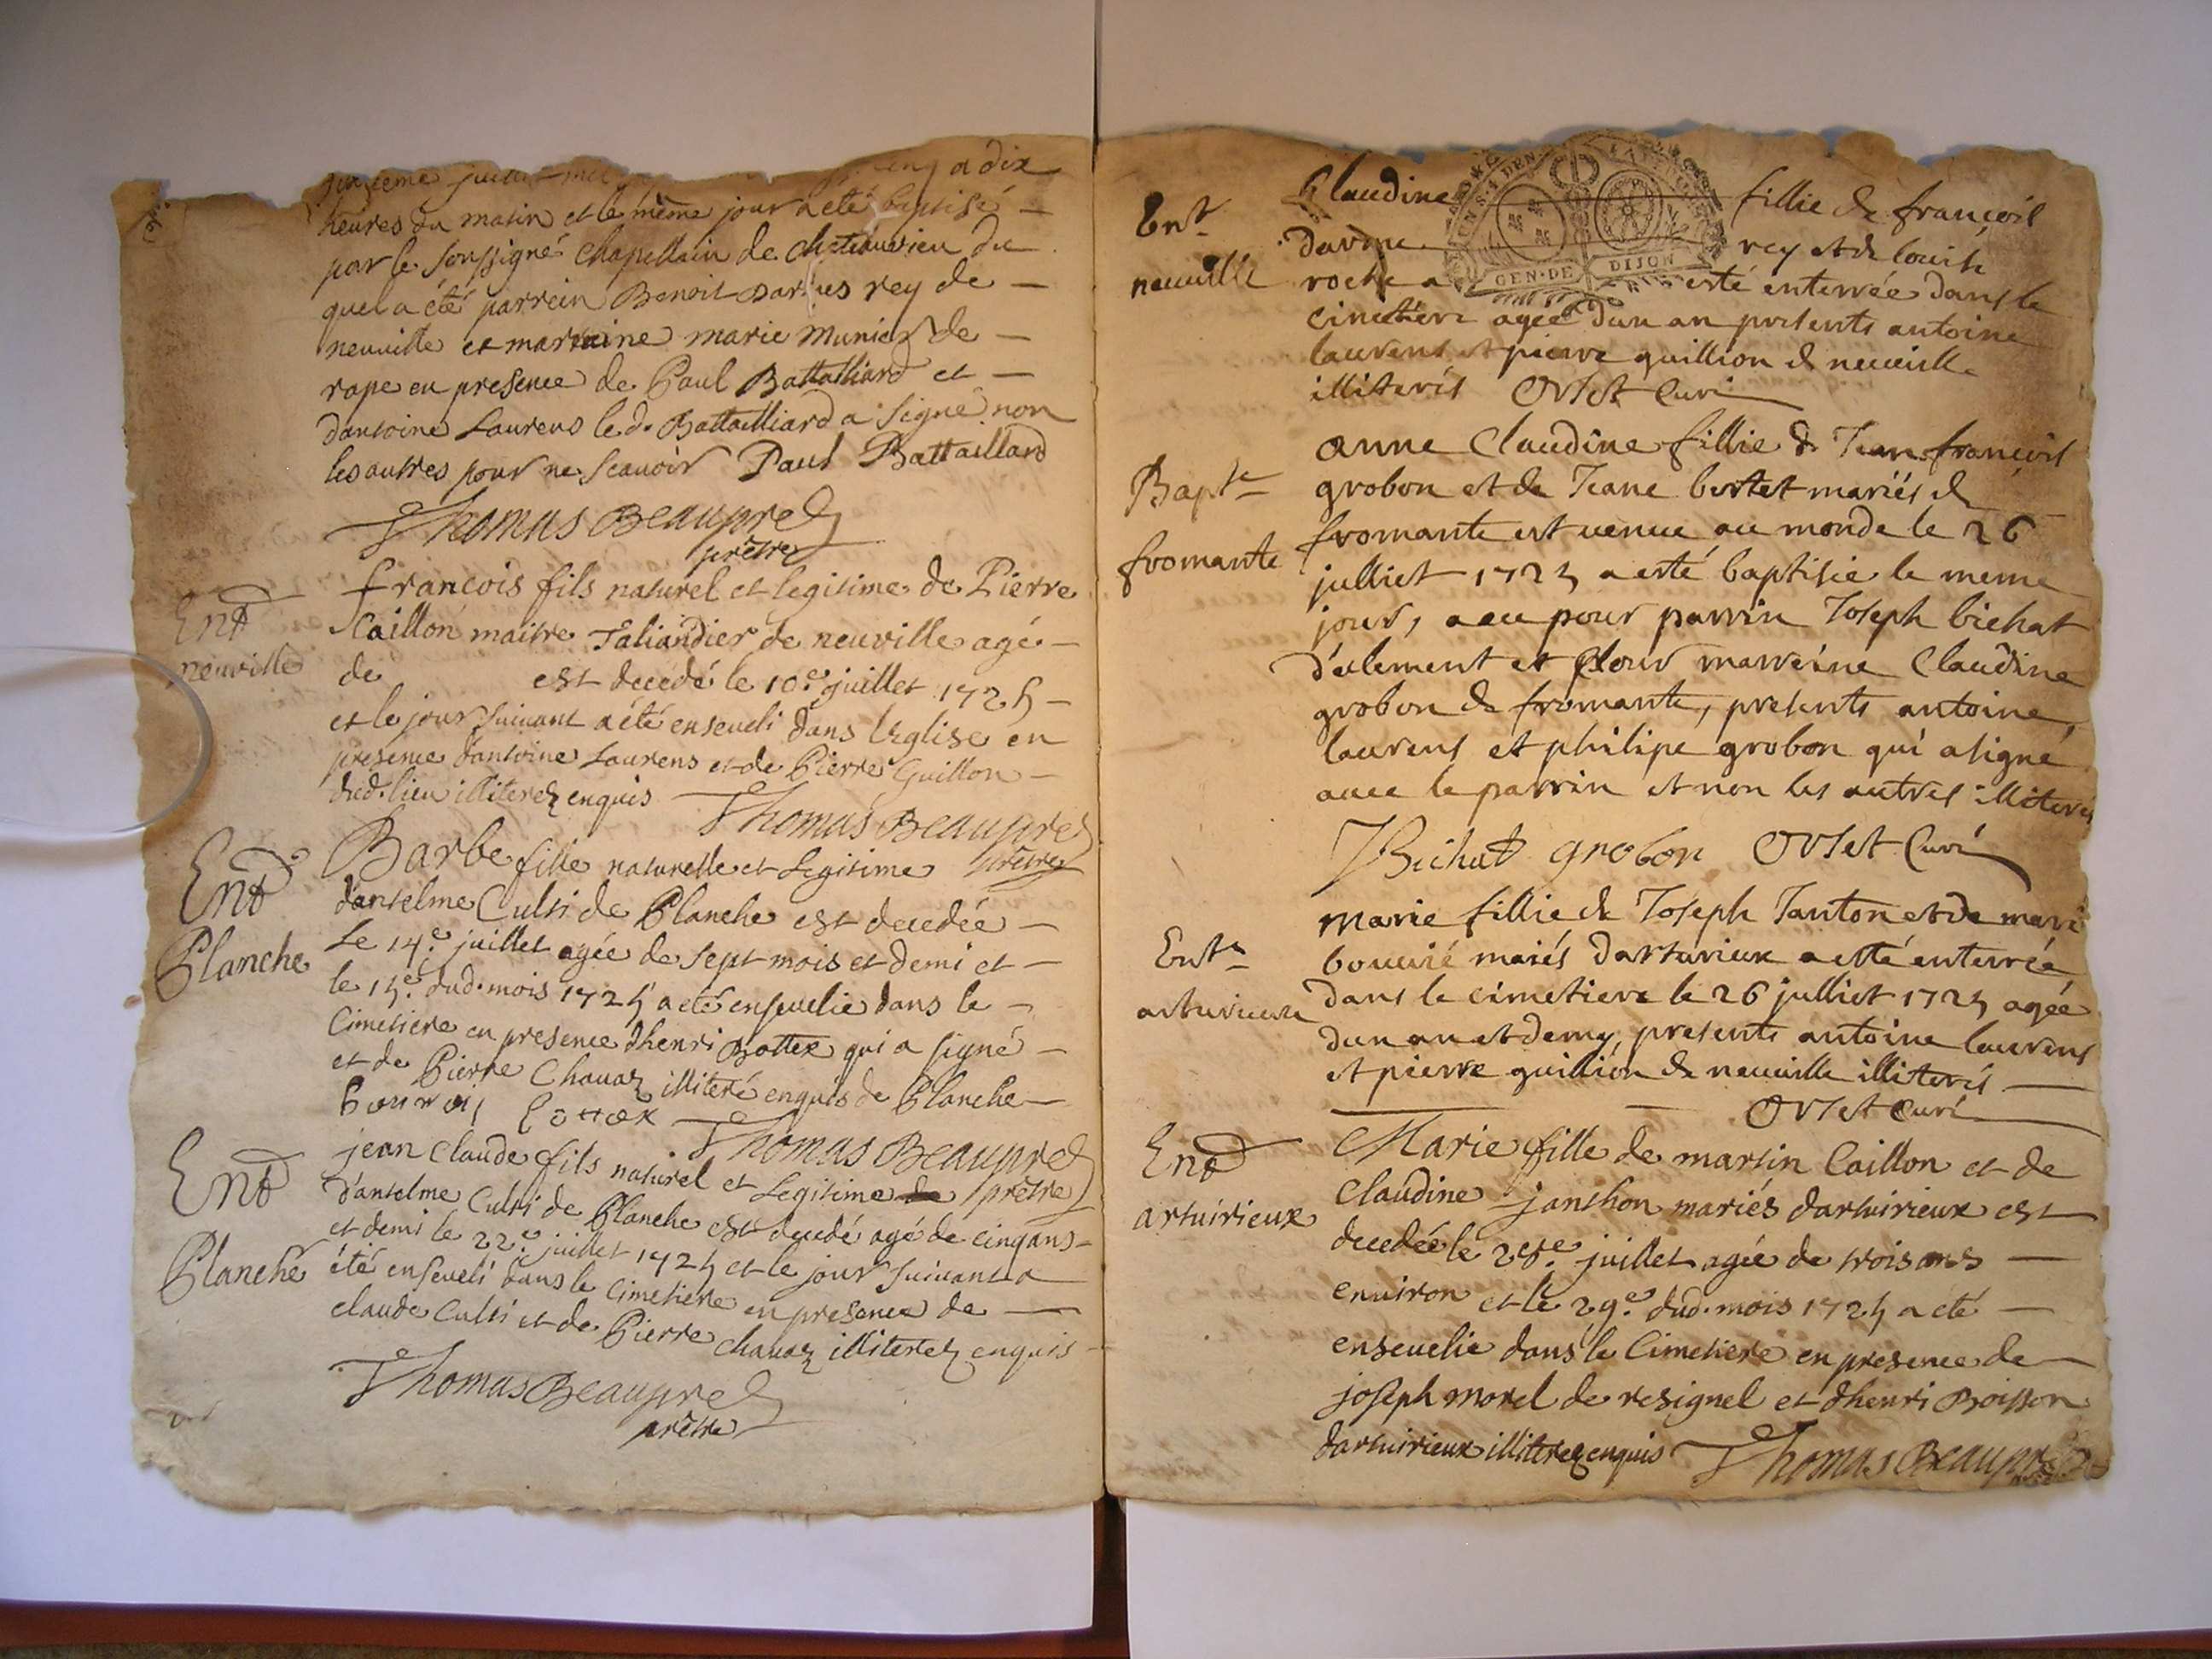 a dix
heures du matin et le même jour a eté baptisé
par le soussigné Chapellain de Chateauvieu du
quel a été parrein Benoit rey de
neuville et marraine marie Munier de
rape en presence de Paul Battailliard et
dantoine Laurens led. Battailliard a signé non
les autres pour ne scauoir Paul Battaillard
Thomas Beaupré
prêtre
Ent
neuville
francois fils naturel et legitime de Pierre
Caillon maitre Taliandier de neuville agé
de est decedé le 10.e juillet 1725
et le jour suiuant a été enseueli dans lEglise en
presence dantoine Laurens et de Pierre Guillon
dud. lieu illiterez enquis Thomas Beaupré
prêtre
Ent
Planche
Barbe fille naturelle et Legitime
dantelme Culti de Planche est decedée
Le 14.e juillet agée de sept mois et demi et
le 15.e dud. mois 1725 a eté enseuelie dans le
Cimetiere en presence dhenri Bottex qui a signé
et de Pierre Chauaz illiteré enquis de Planche
Bottex Thomas Beaupré
prêtre
Ent
Planche
jean Claude fils naturel et Legitime de
dantelme Culti de Planche est decedé agé de cinq ans
et demi le 22.e juillet 1725 et le jour suiuant a
été enseueli dans le Cimetiere en presence de
claude Culti et de Pierre chauaz illiterez enquis
Thomas Beaupré
prêtre
Ent
neuuille
Claudine fillie de françois
rey et de louise
roche a esté enterrée dans le
cimetiere agee dun an presents antoine
laurens et pierre guillion de neuuille
illiterés Ovset Curé
GEN. DE DIJON
Bapt
fromante
anne Claudine fillie de Jean françois
grobon et de Jeane bertet mariés de
fromante est uenue au monde le 26
julliet 1725 a esté baptisée le meme
jour, a eu pour parrin Joseph bichat
d'ulement et pour marreine Claudine
grobon de fromante, presents antoine
laurens et philipe grobon qui a signé
auec le parrin et non les autres illiterés
JBichat grobon Ovset Curé
Ent
arturieux
marie fillie de Joseph Janton et de marie
mariés darturieux a esté enterrée
dans le cimetiere le 26 julliet 1725 agée
dun an et demy, presents antoine laurens
et pierre guillion de neuuille illiterés
Ovset Curé
Ent
artuirieux
Marie fille de martin Caillon et de
Claudine janthon mariés dartuirieux est
decedée le 28.e juillet agée de trois ans
enuiron et le 29.e dud. mois 1725 a eté
enseuelie dans le Cimetiere en presence de
joseph morel de resignel et dhenri Boisson
dartuirieux illiterez enquis Thomas Beaupré